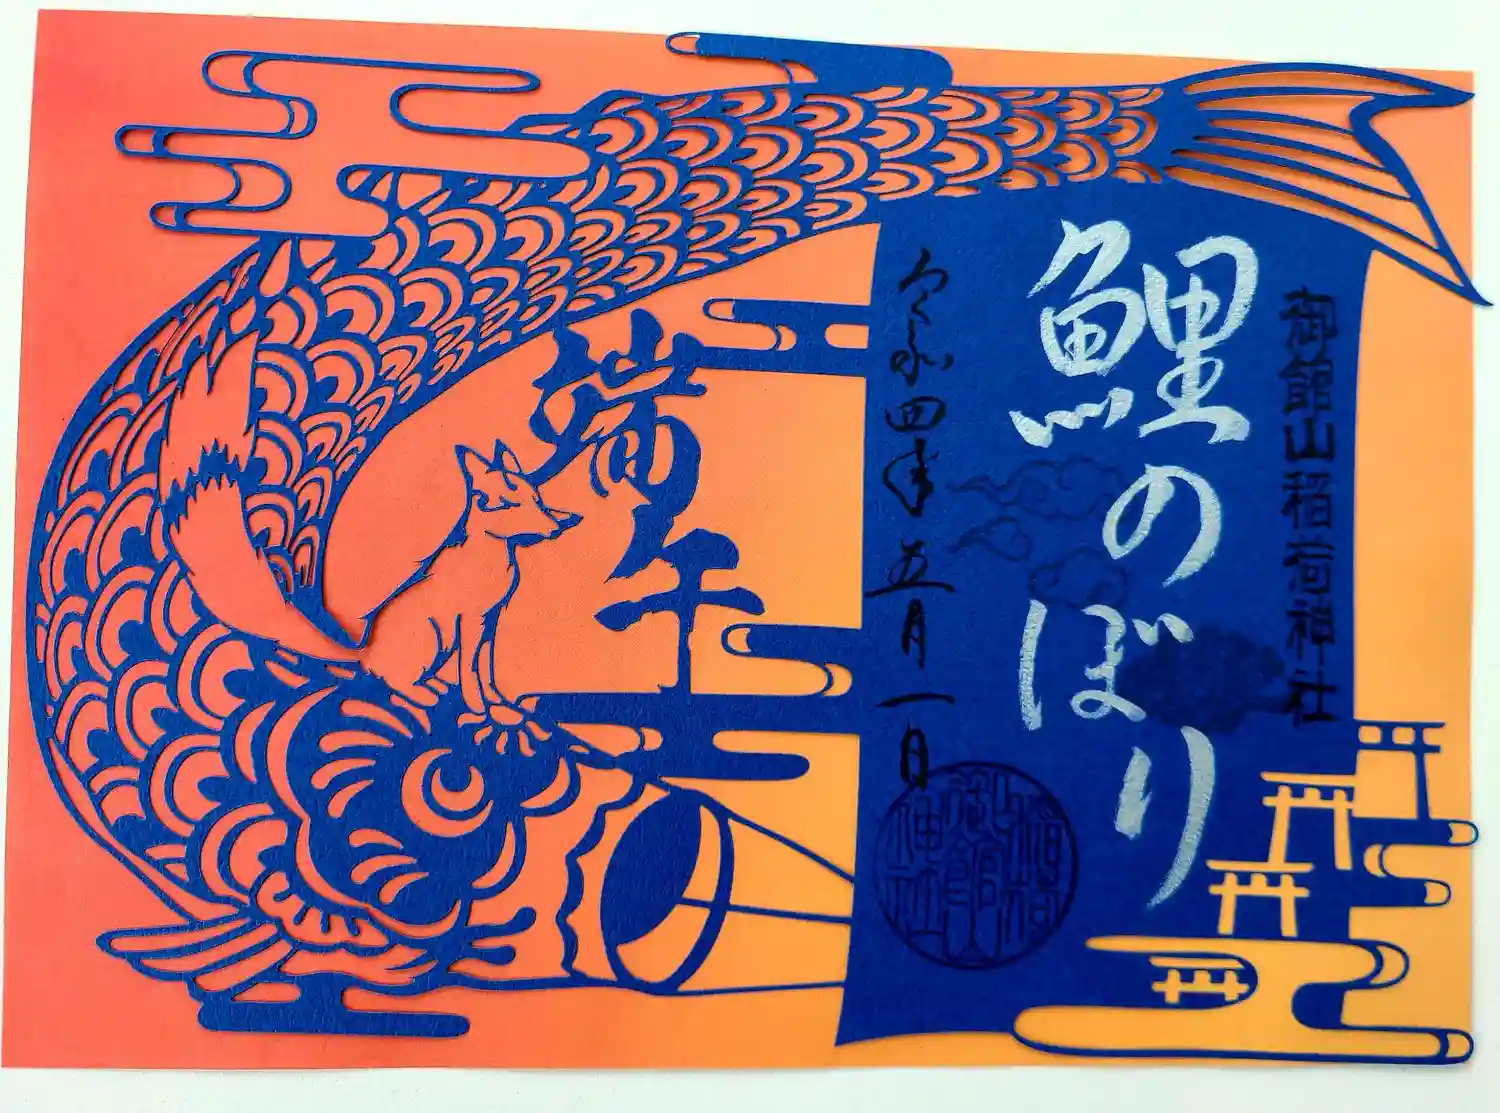 御館山稲荷神社
鯉のぼり
令和四年五月一日
端午
御館山
稲荷
神社